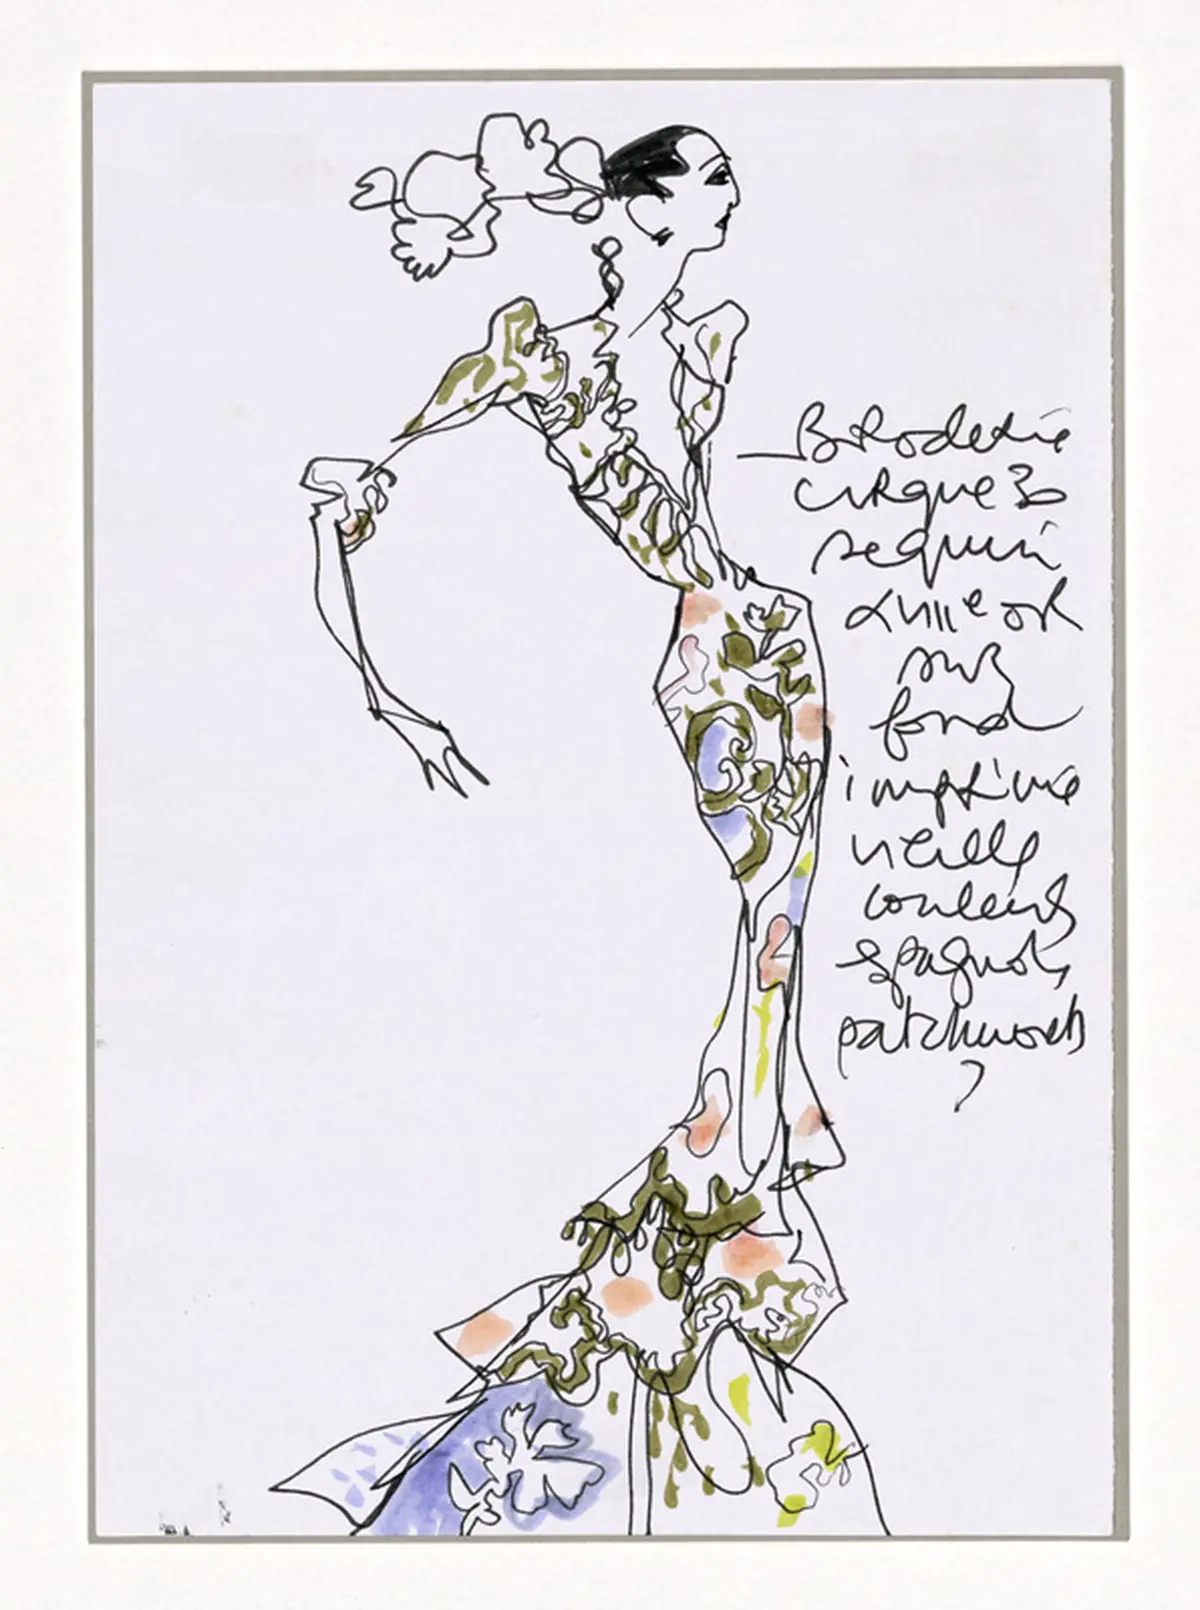 Broderie
cirque 30
sequin
cuivre or
sur
fond
imprimé
vieilles
couleurs
espagnols
patchwork
?